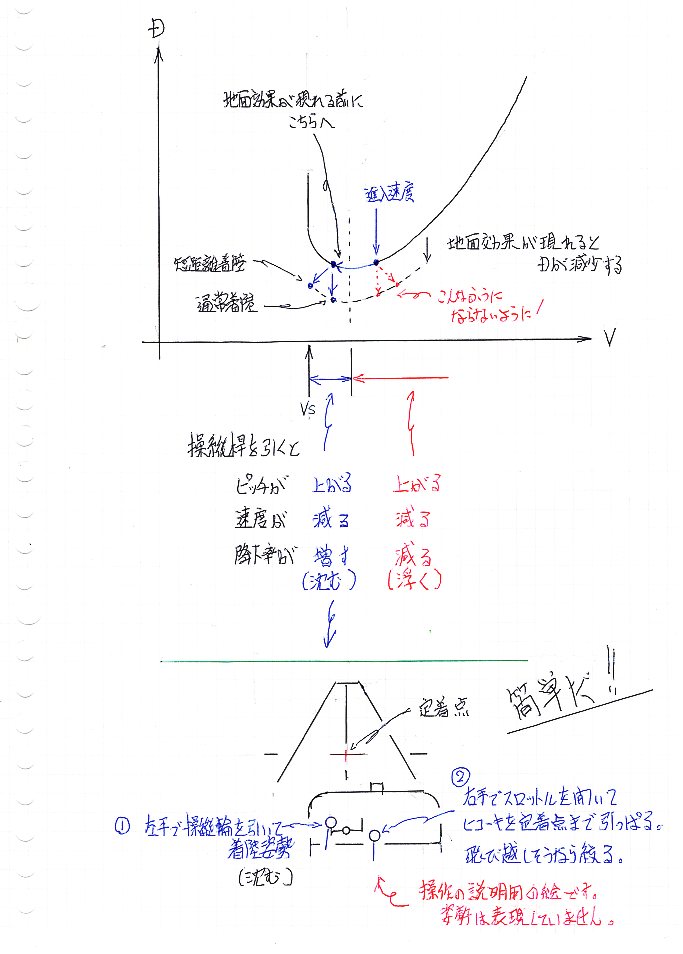 D
地面効果が現れる前に
こちらへ
進入速度
地面効果が現れると
Dが減少する
短距離着陸
通常着陸
こんなふうに
ならないように!
V
Vs
操縦桿を引くと
ピッチが 上がる 上がる
速度が 減る 減る
降下率が 増す 減る
(沈む) (浮く)
定着点
簡単だ!!
① 左手で操縦輪を引いて
着陸姿勢
(沈む)
②
右手でスロットルを開いて
ヒコーキを定着点まで引っぱる。
飛び越しそうなら絞る。
操作の説明用の絵です。
姿勢は表現していません。